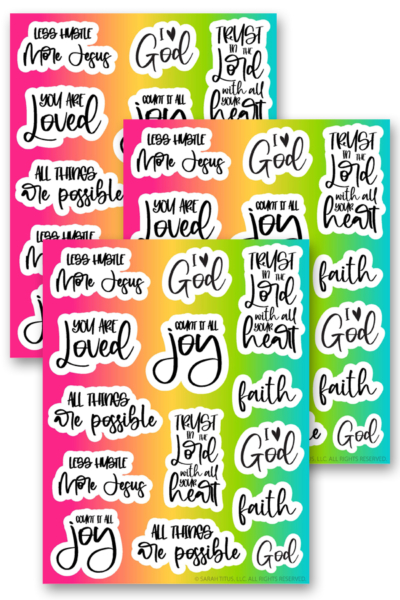 LESS HUSTLE
More Jesus
I ♥
God
TRUST
IN THE
Lord
with all
YOUR
heart
YOU ARE
Loved
COUNT IT ALL
ALL THINGS
are possible
LESS HUSTLE
LESS HUSTLE
More Jesus
I ♥
God
TRUST
IN THE
Lord
with all
YOUR
heart
YOU ARE
Loved
COUNT IT ALL
joy
faith
I ♥
God
faith
God
LLC. ALL RIGHTS RESERVED
LESS HUSTLE
More Jesus
I ♥
God
TRUST
IN THE
Lord
with all
YOUR
heart
YOU ARE
Loved
COUNT IT ALL
joy
faith
ALL THINGS
are possible
TRUST
IN THE
Lord
with all
YOUR
heart
I ♥
God
LESS HUSTLE
More Jesus
faith
COUNT IT ALL
joy
ALL THINGS
are possible
God
© SARAH TITUS, LLC. ALL RIGHTS RESERVED